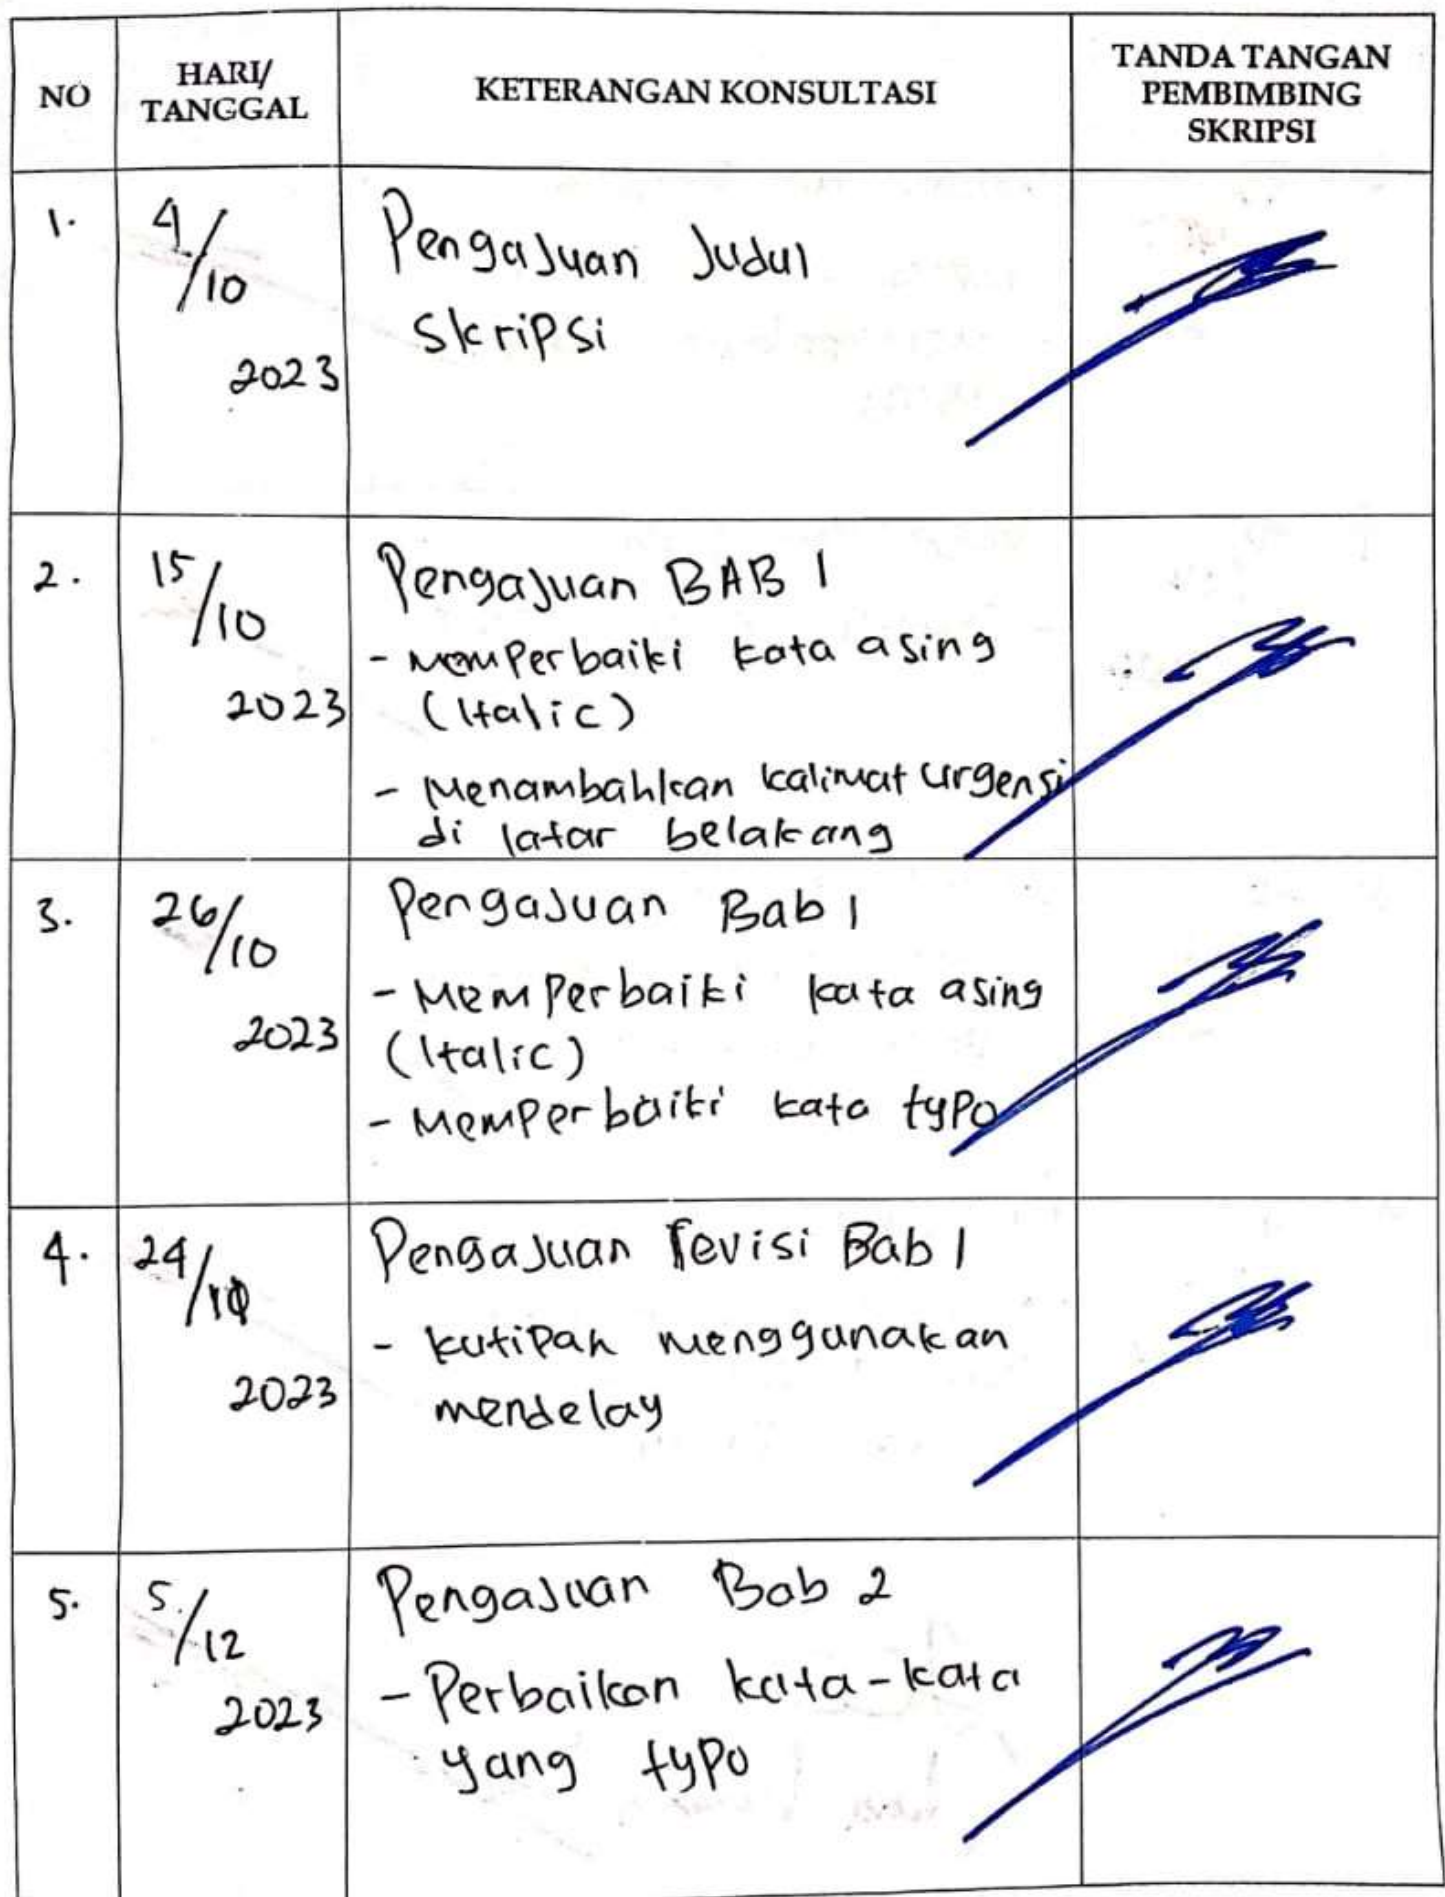 NO
HARI/
TANGGAL
KETERANGAN KONSULTASI
TANDA TANGAN
PEMBIMBING
SKRIPSI
1.
4/10
2023
Pengajuan Judul
Skripsi
2.
15/10
2023
Pengajuan BAB 1
- memperbaiki kata asing
(Italic)
- Menambahkan kalimat urgensi
di latar belakang
3.
26/10
2023
Pengajuan Bab 1
- Memperbaiki kata asing
(Italic)
- Memperbaiki kata typo
4.
24/
2023
Pengajuan revisi Bab 1
- kutipan menggunakan
mendelay
5.
5/12
2023
Pengajuan Bab 2
- Perbaikan kata-kata
yang typo